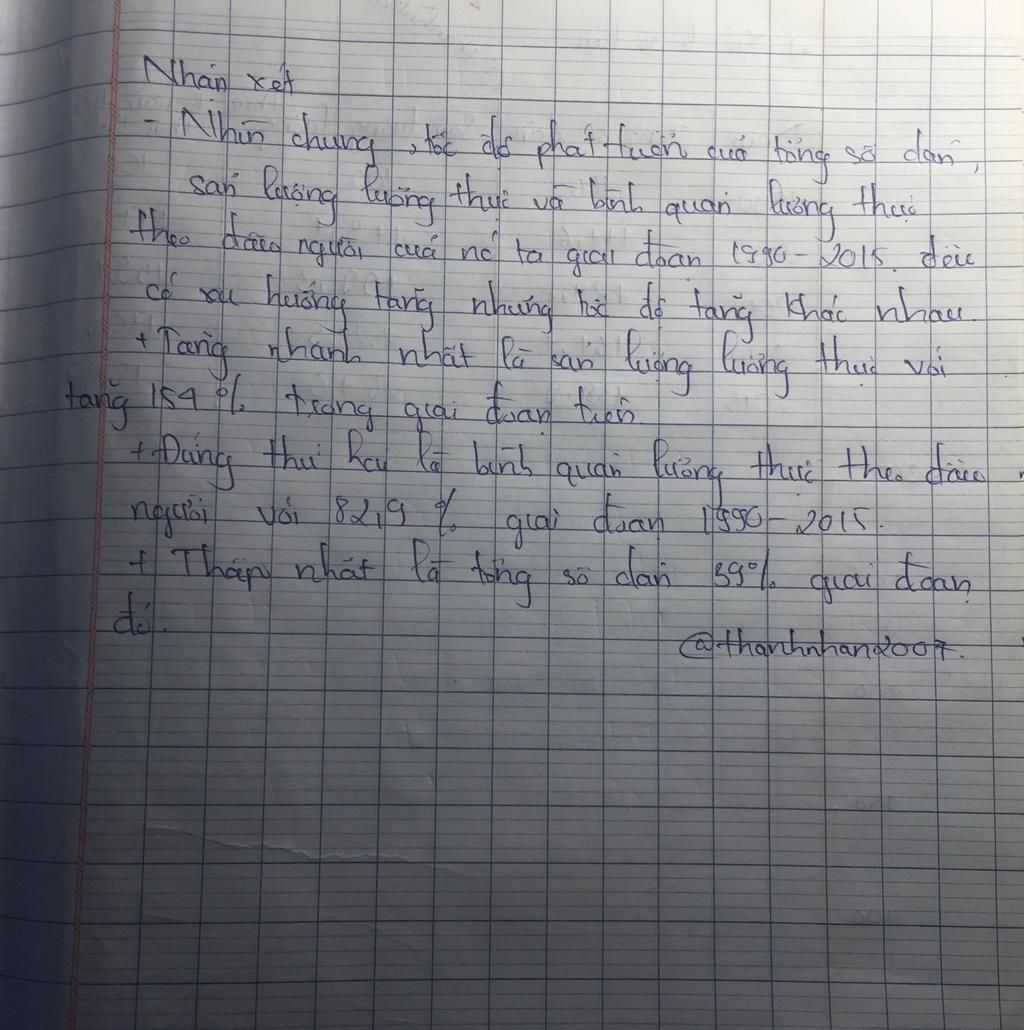 Nhận xét
- Nhìn chung, tốc độ phát triển của tổng số dân,
sản lượng lương thực và bình quân lương thực
theo đầu người của nc ta giai đoạn 1990-2015. đều
có xu hướng tăng nhưng tốc độ tăng khác nhau.
+ Tăng nhanh nhất là sản lượng lương thực với
tăng 154% trong giai đoạn trên
+ Đứng thứ hai là bình quân lương thực theo đầu
người với 82,9% giai đoạn 1990-2015.
+ Thấp nhất là tổng số dân 39% giai đoạn
đó.
@thanhnhan2007.